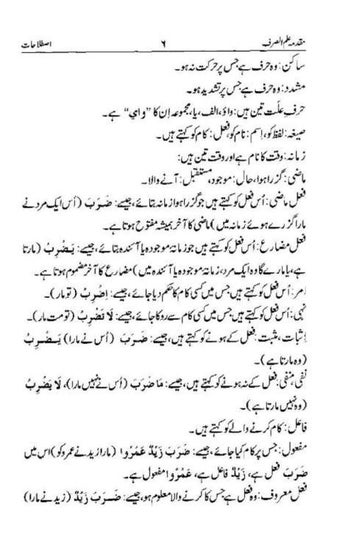 مقدمہ علم الصرف ۶ اصطلاحات
ساکن: وہ حرف ہے جس پر حرکت نہ ہو۔
مشدد: وہ حرف ہے جس پر تشدید ہو۔
حرفِ علّت تین ہیں: واؤ، الف، یا، مجموعہ ان کا ”وای“ ہے۔
صیغہ: لفظ کو، اِسم: نام کو، فعل: کام کو کہتے ہیں۔
زمانہ: وقت کا نام ہے اور وقت تین ہیں:
ماضی: گزرا ہوا، حال: موجود، مستقبل: آنے والا۔
فعل ماضی: اُس فعل کو کہتے ہیں جو گزرا ہوا زمانہ بتائے، جیسے: ضَرَبَ (اُس ایک مرد نے
مارا گزرے ہوئے زمانہ میں) ماضی کا آخر ہمیشہ مفتوح ہوتا ہے۔
فعل مضارع: اُس فعل کو کہتے ہیں جو زمانۂ موجودہ یا آئندہ بتائے، جیسے: یَضْرِبُ (مارتا
ہے، یا مارے گا وہ ایک مرد، زمانہ موجودہ یا آئندہ میں) مضارع کا آخر مضموم ہوتا ہے۔
امر: اُس فعل کو کہتے ہیں جس میں کسی کام کا حکم دیا جائے، جیسے: اِضْرِبْ (تو مار)۔
نہی: اُس فعل کو کہتے ہیں جس میں کسی کام سے روکا جائے، جیسے: لَا تَضْرِبْ (تو مت مار)۔
اِثبات، مثبت: فعل کے ہونے کو کہتے ہیں، جیسے: ضَرَبَ (اُس نے مارا) یَضْرِبُ
(وہ مارتا ہے)۔
نفی، منفی: فعل کے نہ ہونے کو کہتے ہیں، جیسے: مَا ضَرَبَ (اُس نے نہیں مارا)، لَا یَضْرِبُ
(وہ نہیں مارتا ہے)۔
فاعل: کام کرنے والے کو کہتے ہیں۔
مفعول: جس پر کام کیا جائے، جیسے: ضَرَبَ زَیْدٌ عَمْرًوا (مارا زید نے عمرو کو) اس میں
ضَرَبَ فعل ہے، زَیْدٌ فاعل ہے، عَمْرًوا مفعول ہے۔
فعل معروف: وہ فعل ہے جس کا کرنے والا معلوم ہو، جیسے: ضَرَبَ زَیْدٌ (زید نے مارا)